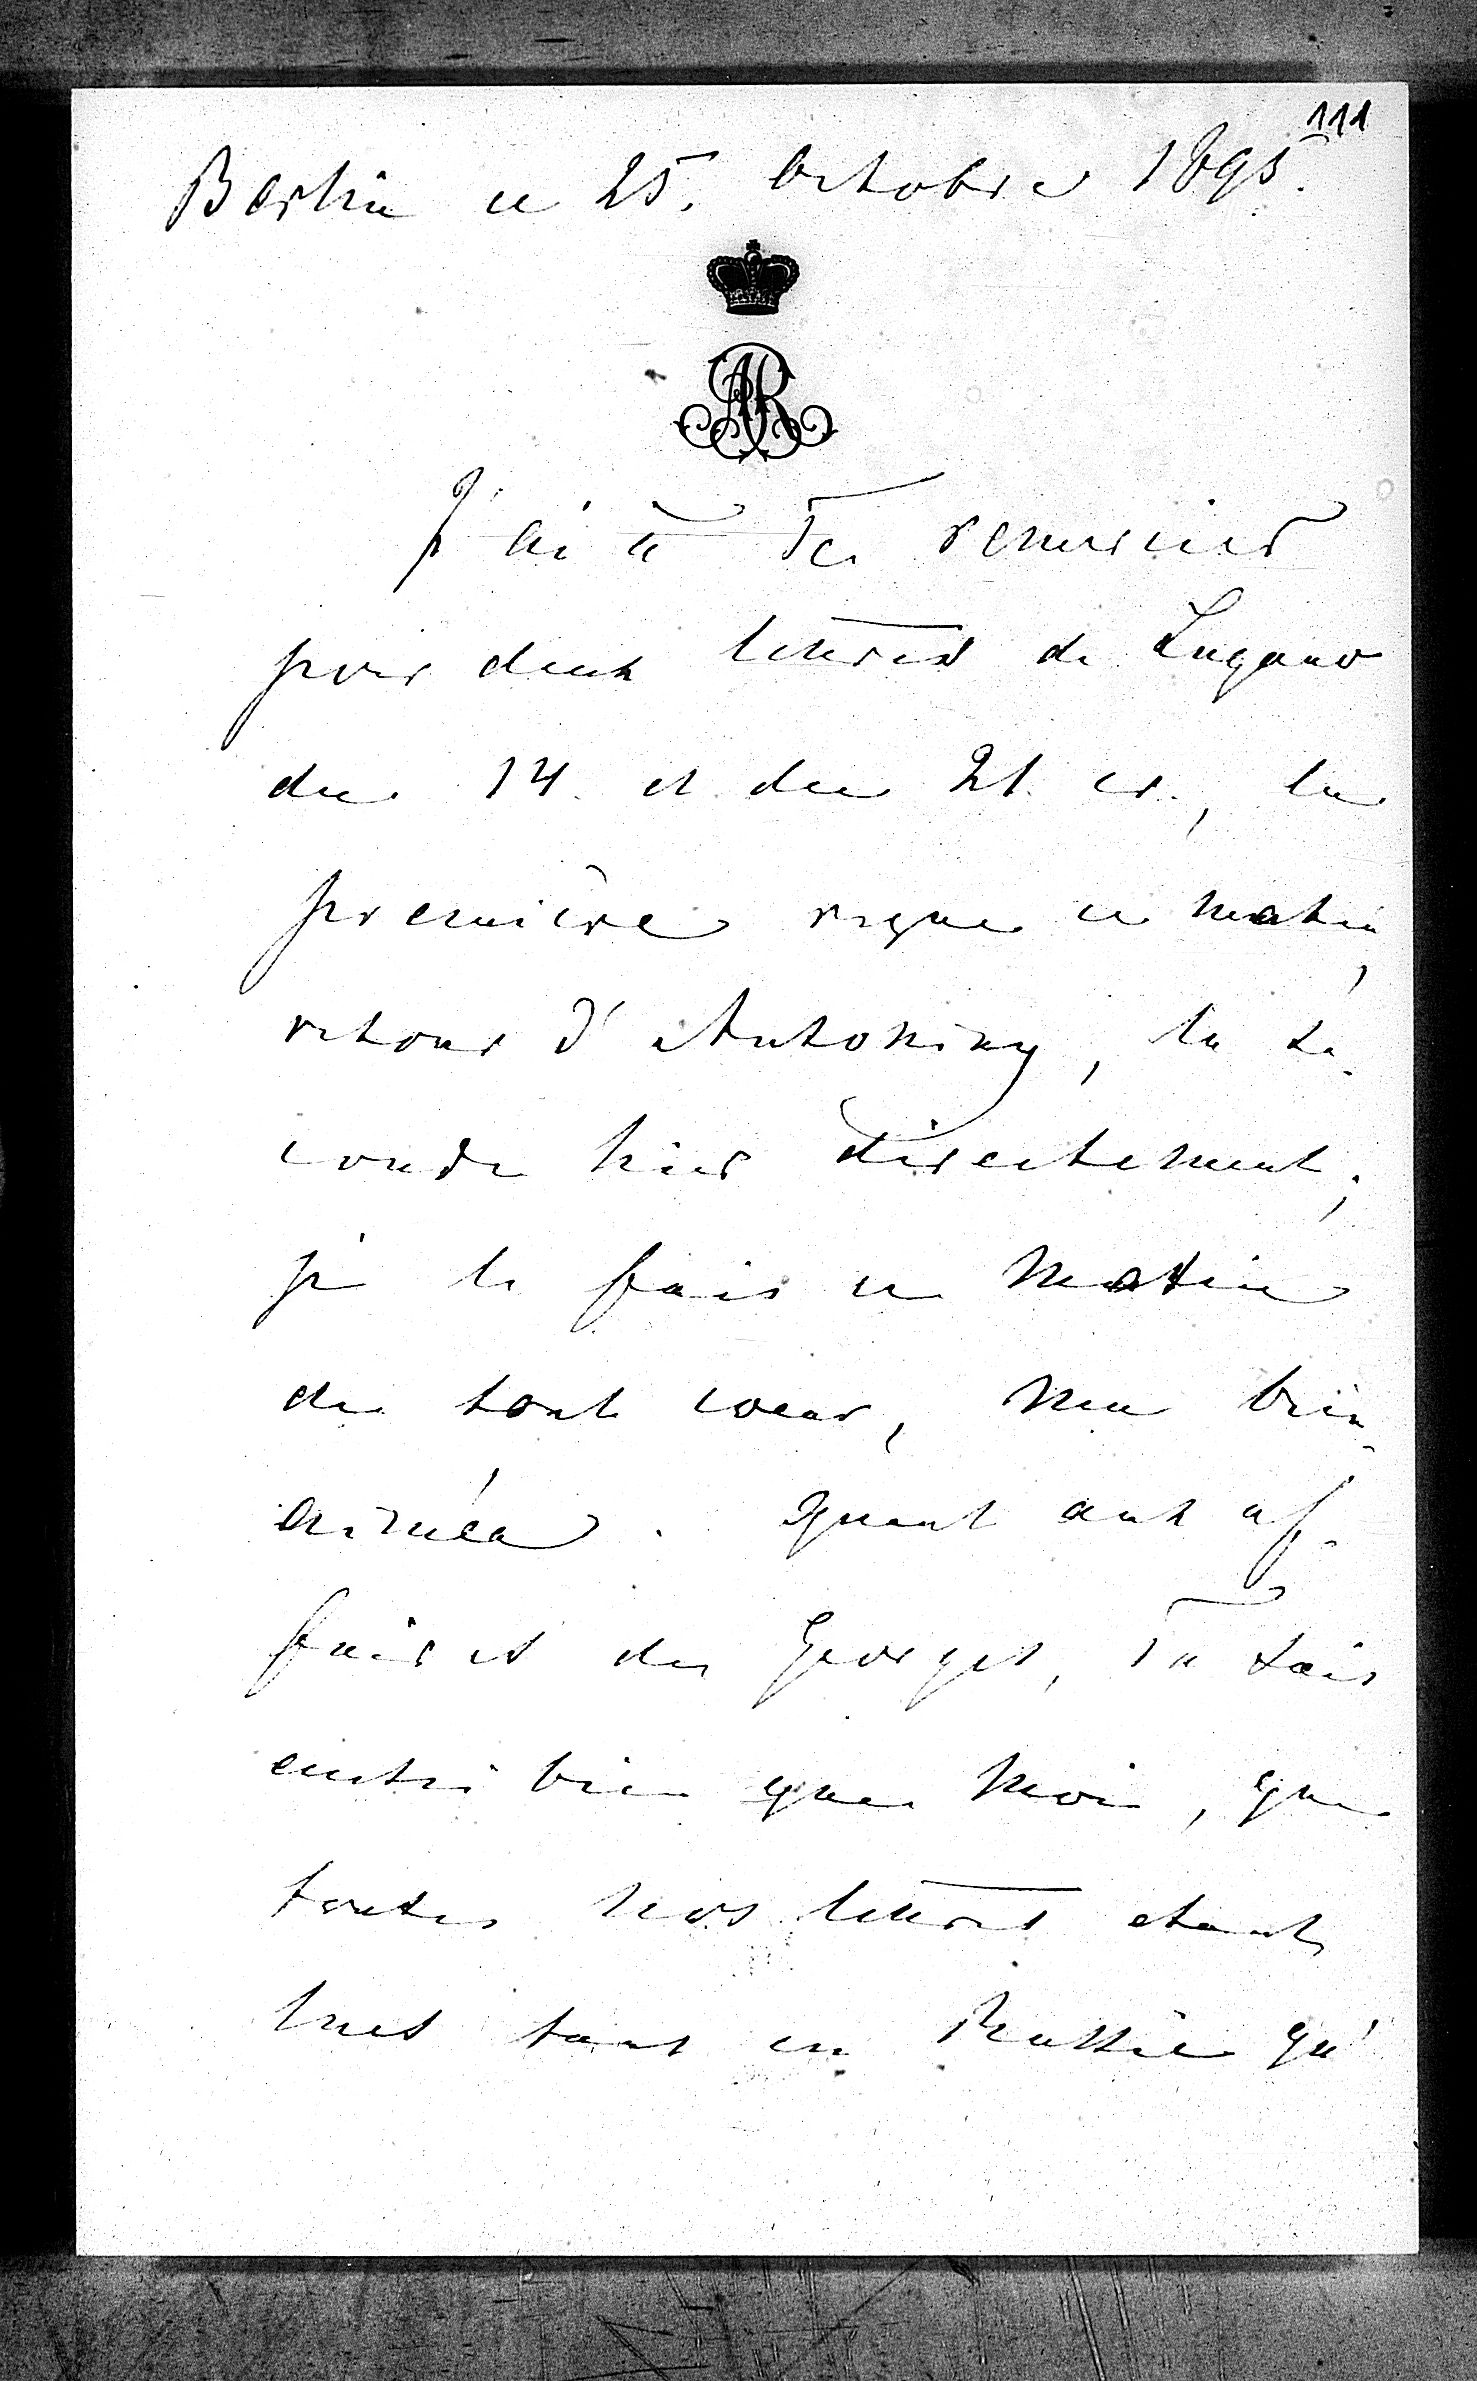 111
Berlin ce 25. Octobre 1895.
AR
J'ai à Te remercier
pour deux lettres de Lugano
du 14. et du 21. cr., la
première reçue ce matin,
retour d'Antoniny, la se-
conde hier directement;
je le fais ce matin
de tout coeur, ma bien
aimée. Quant aux af-
faires de Georges, Tu sais
aussi bien que moi, que
toutes nos lettres étant
lues tant en Russie qu'